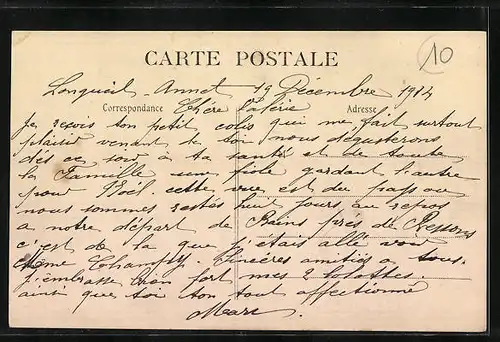 10
CARTE POSTALE
Longueil-Annel 19 Décembre 1914
Correspondance
Adresse
Chère Valérie
Je reçois ton petit colis qui me fait surtout
plaisir venant de toi nous dégusterons
dès ce soir à ta santé et de toute
la Famille une fiole gardant l'autre
pour Noël. cette vue est du pays ou
nous sommes restés huit jours au repos
a notre départ de Bains près de Ressons
c'est de la que j'etais allé voir
Sincères amitiés a tous.
J'embrasse bien fort mes 2
ainsi que toi ton tout affectionné
Marc